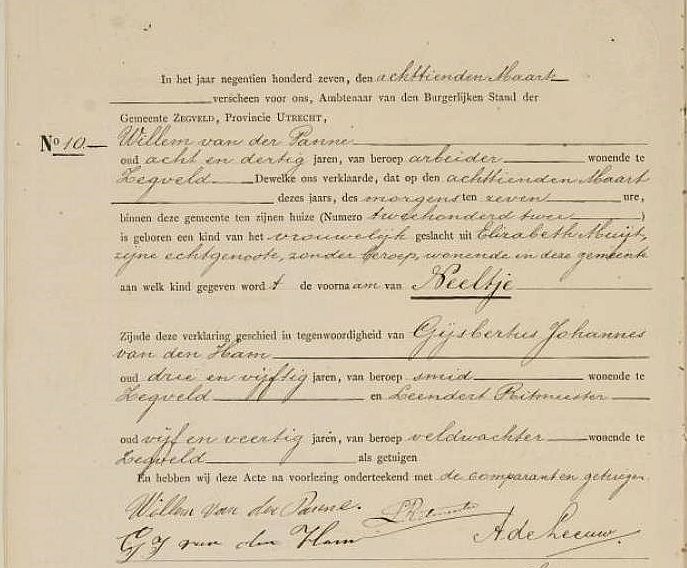 In het jaar negentien honderd zeven, den achttienden Maart
verscheen voor ons, Ambtenaar van den Burgerlijken Stand der
Gemeente ZEGVELD, Provincie UTRECHT,
No 10 Willem van der Panne
oud acht en dertig jaren, van beroep arbeider wonende te
Zegveld Dewelke ons verklaarde, dat op den achttienden Maart
dezes jaars, des morgens ten zeven ure,
binnen deze gemeente ten zijnen huize (Numero tweehonderd twee)
is geboren een kind van het vrouwelijk geslacht uit Elizabeth Muijt,
zijne echtgenoote, zonder beroep, wonende in deze gemeente
aan welk kind gegeven wordt de voornaam van Neeltje
Zijnde deze verklaring geschied in tegenwoordigheid van Gijsbertus Johannes
van den Ham
oud drie en vijftig jaren, van beroep smid wonende te
Zegveld en Leendert Ritmeester
oud vijf en veertig jaren, van beroep veldwachter wonende te
Zegveld als getuigen
En hebben wij deze Acte na voorlezing onderteekend met de comparant en getuigen.
Willem van der Panne. LRitmeester
G J van den Ham A de Leeuw